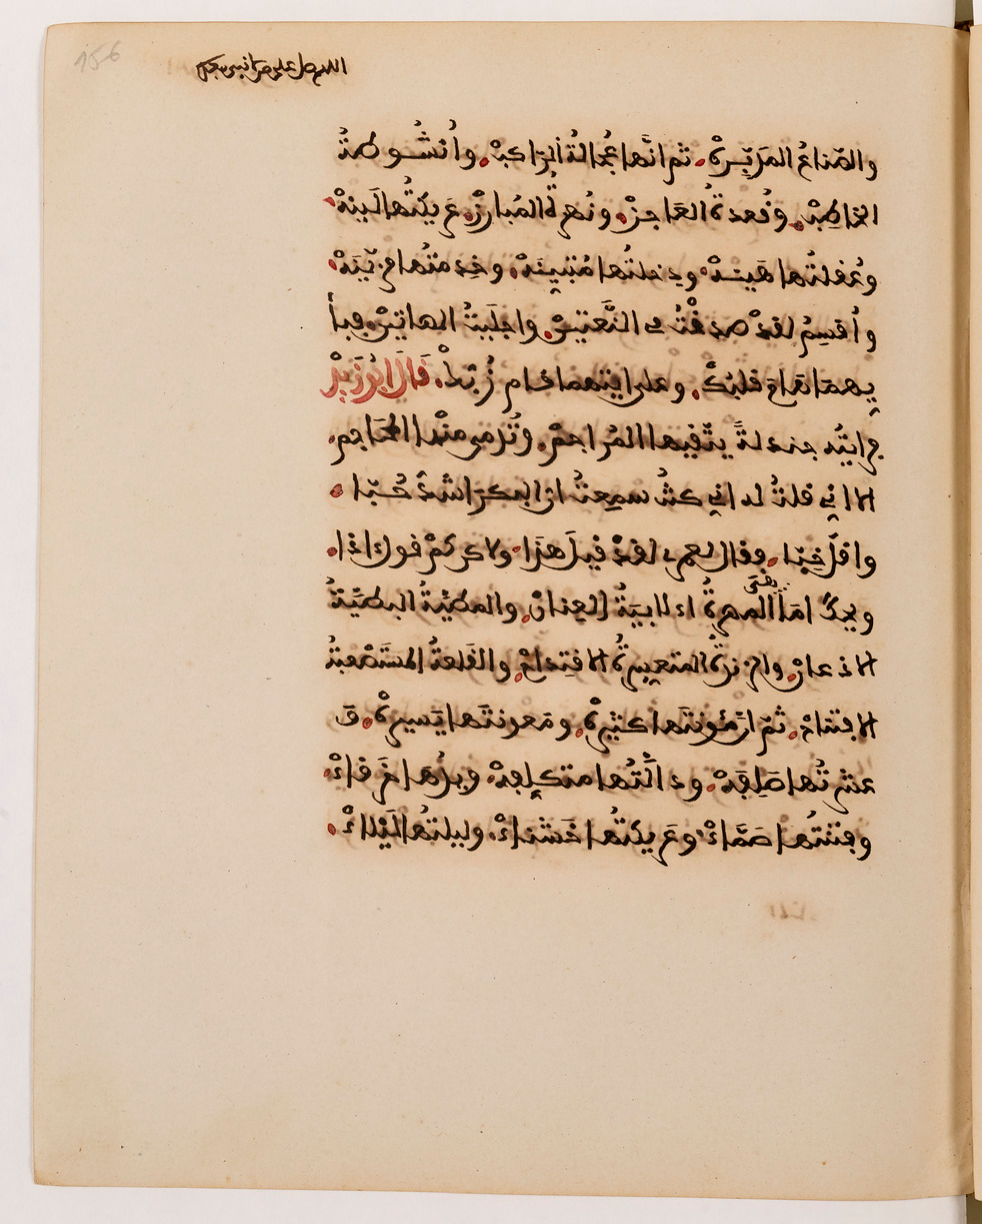 والصّناعُ المدَبّرةْ. ثم انّها عُجالةُ الرّاكبْ. واُنشُوطةُ
الخاطِبْ. وقُعدةُ العَاجزْ. ونُهزةُ المُبارزْ. عَريكَتُها لَيّنهْ
وعُقلتُها هَيّنهْ. ودِخلتُها مُتبيّنهْ. وخِدمتُها مزيّنَهْ.
واُقسِمُ لقدْ صدَقْتُ في النَّعتيْنْ. واجلَيتُ المهاتينْ. فبأ
يهما هَامَ قلبُكْ. وعلى ايتهما قام زُبّكْ. قَالَ ابُوزَيْدْ
فرايتُه جندلةً يتّقيها المُراجمْ. وتُدمى منْها المحَاجم.
الا اني قلتُ له اني كنتُ سمِعتُ ان البكرَ اشدّ حُبّا.
واقلّ خِبّا. فقال لعمرى لقدْ قيلَ هذا. ولاكن كمْ قول اذا.
ويحكَ امَا هىَ المهرةُ الابيّةُ العِنانْ. والمطيّةُ البطيّةُ
الاذعانْ. والزندةُ المتعسرةُ الاقتِداحْ. والقَلعةُ المستَصْعبةُ
الافتتاحْ. ثمّ انّ مَئونتَها كثيرةْ. ومَعونتَها يَسيرةْ. وَ
عشرتُها صَلِفهْ. ودالّتُها متكلِفهْ. ويدُها خَرقاءْ.
وفتنتُها صَمَّاءْ. وعَريكتُها خَشناءْ. وليلتُها لَيْلاءْ.